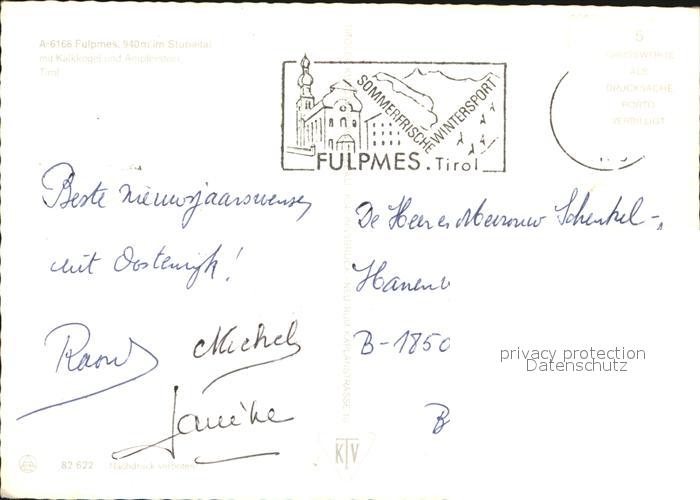 A-6166 Fulpmes, 940m im Stubaital
mit Kalkkögel und Ampferstein,
Tirol
SOMMERFRISCHE
WINTERSPORT
FULPMES. Tirol
5
GRUSSWORTE
ALS
DRUCKSACHE
PORTO
VERBILLIGT
Beste nieuwjaarswensen
uit Oostenrijk!
Raoul
Michel
Janéke
De Heer en Mevrouw Schenkel-
B-1850
B
privacy protection
Datenschutz
KTV
82 622 Nachdruck verboten